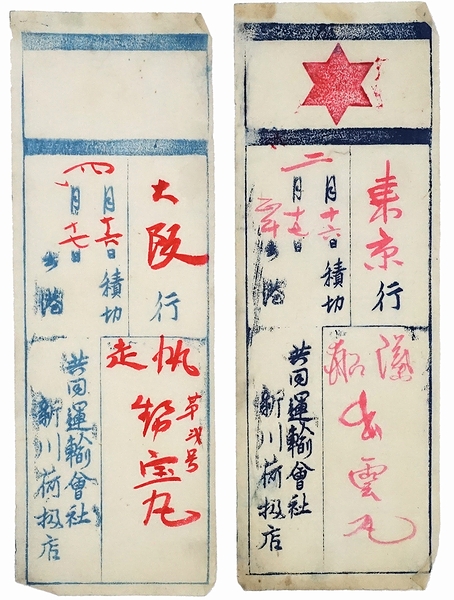 東京行
二月十六日積切
月十七日
出港
滊船
出雲丸
共同運輸會社
新川荷扱店
大阪行
四月十六日積切
月十七日
出港
帆走
第弐号
共同運輸會社
新川荷扱店